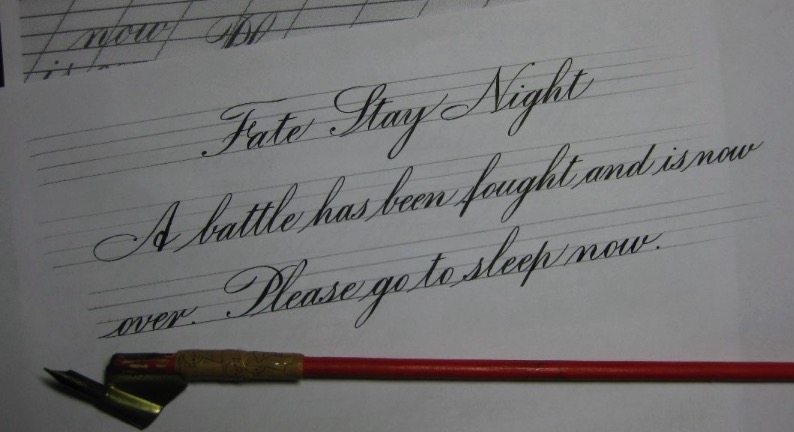 now
is
Fate Stay Night
A battle has been fought and is now
over. Please go to sleep now.